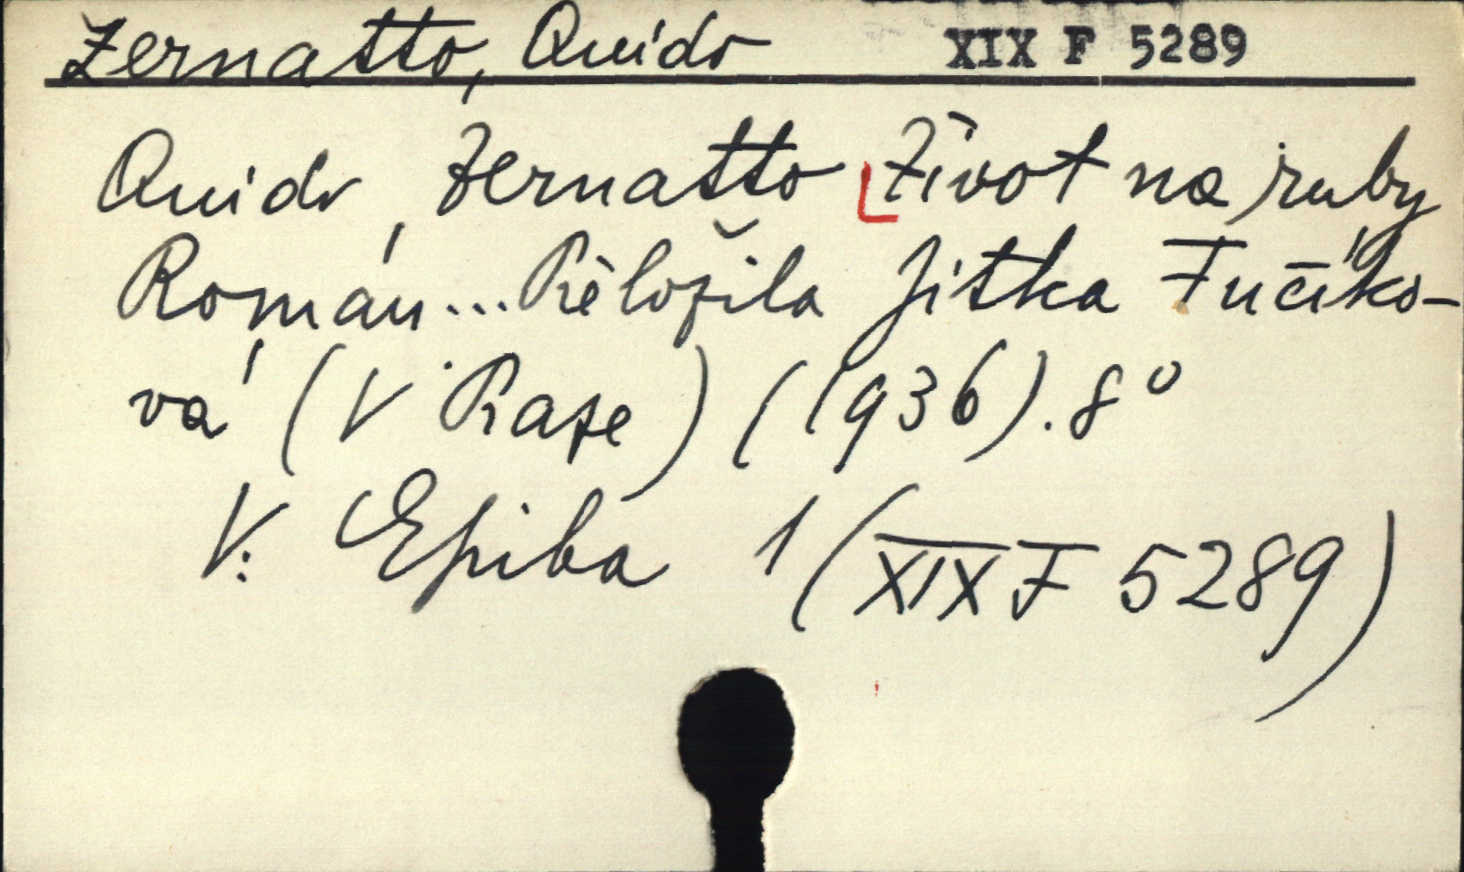 Zernatto, Quido XIX F 5289
Quido Zernatto Život na ruby
Román... Přeložila Jitka Fučíko-
vá (V Praze) (1936). 8°
V: Epiba 1 (XIX F 5289)